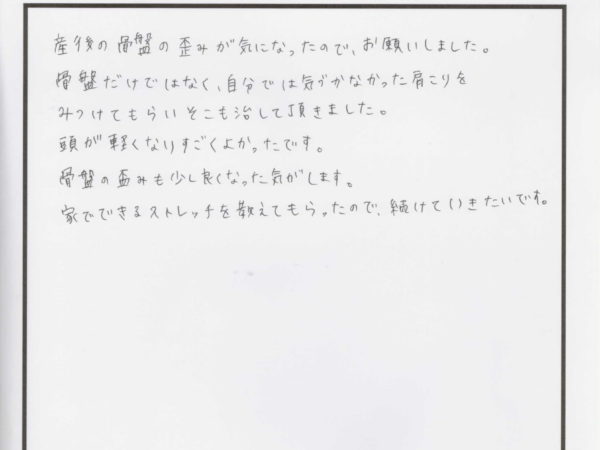 産後の骨盤の歪みが気になったので、お願いしました。
骨盤だけではなく、自分では気づかなかった肩こりを
みつけてもらいそこも治して頂きました。
頭が軽くなりすごくよかったです。
骨盤の歪みも少し良くなった気がします。
家でできるストレッチを教えてもらったので、続けていきたいです。